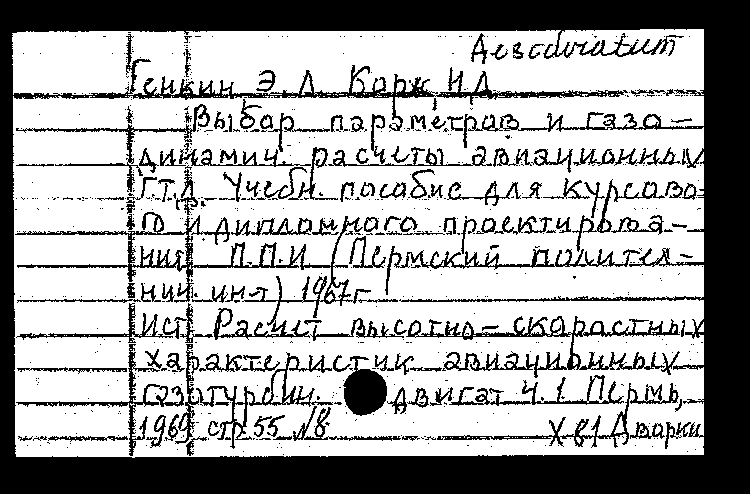 Desideratum
Генкин Э. Л Корж Н Д
Выбор параметров и газо-
динамич. расчеты авиационных
Г.Т.Д. Учебн. пособие для курсово-
го и дипломного проектирова-
ния П.П.И (Пермский политех-
нич. ин-т) 1967г
Ист. Расчет высотно-скоростных
характеристик авиационных
газотурбин. двигат Ч. 1 Пермь,
1969 стр 55 №8